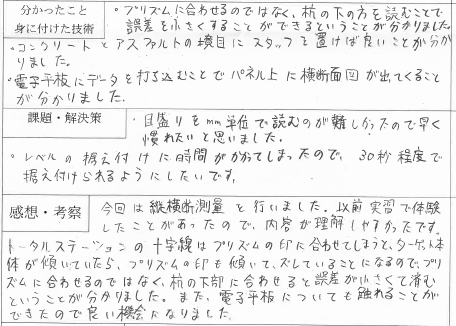 分かったこと
身に付けた技術
・プリズムに合わせるのではなく、杭の下の方を読むことで
誤差を小さくすることができるということが分かりました。
・コンクリートとアスファルトの境目にスタッフを置けば良いことが分か
りました。
・電子平板にデータを打ち込むことでパネル上に横断面図が出てくること
が分かりました。
課題・解決策
・目盛りをmm単位で読むのが難しかったので早く
慣れたいと思いました。
・レベルの据え付けに時間がかかってしまったので、30秒程度で
据え付けられるようにしたいです。
感想・考察
今回は縦横断測量を行いました。以前実習で体験
したことがあったので、内容が理解しやすかったです。
トータルステーションの十字線はプリズムの印に合わせてしまうと、ターゲット本
体が傾いていたら、プリズムの印も傾いて、ズレていることになるので、プリ
ズムに合わせるのではなく、杭の下部に合わせると誤差が小さくて済む
ということが分かりました。また、電子平板についても触れることが
できたので良い機会になりました。